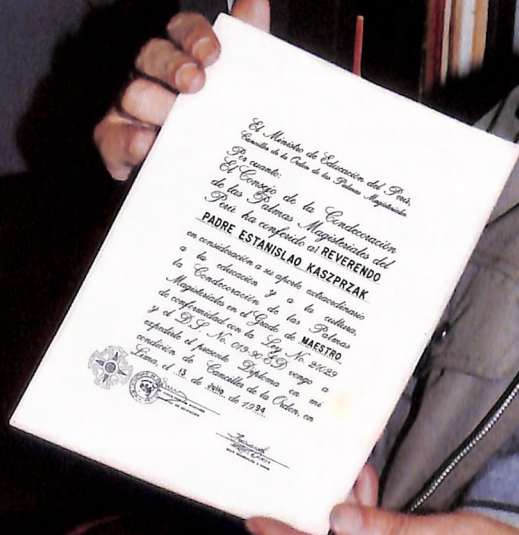 El Ministro de Educación del Perú,
Canciller de la Orden de las Palmas Magisteriales
Por cuanto:
El Consejo de la Condecoración
de las Palmas Magisteriales del
Perú ha conferido al REVERENDO
PADRE ESTANISLAO KASZPRZAK
en consideración a su aporte extraordinario
a la educación y a la cultura,
la Condecoración de las Palmas
Magisteriales en el Grado de MAESTRO
de conformidad con la Ley No.
y el D.S. No. 019-90 ED vengo a
expedirle el presente Diploma en mi
condición de Canciller de la Orden, en
Lima, el 13 de Julio de 1994